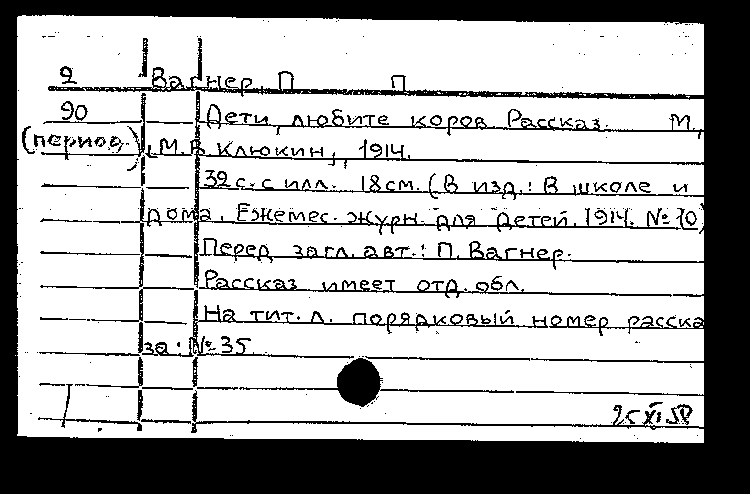 2 Вагнер, П П
90 Дети, любите коров Рассказ. М.,
(период.) „М.В. Клюкин„, 1914.
32 с. с илл. 18 см. (В изд.: В школе и
дома. Ежемес. журн. для детей. 1914. № 10)
Перед загл. авт.: П. Вагнер.
Рассказ имеет отд. обл.
На тит. л. порядковый номер расска
за: № 35
25 XI